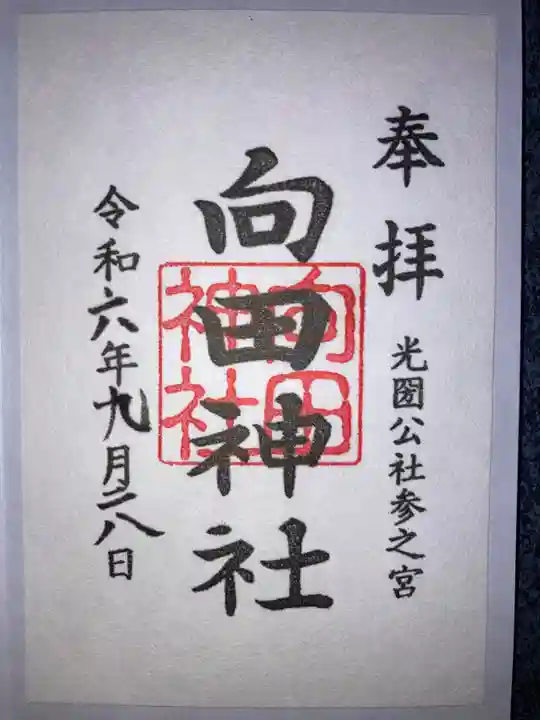 奉拝
光圀公社参之宮
向田神社
向田
神社
令和六年九月二八日